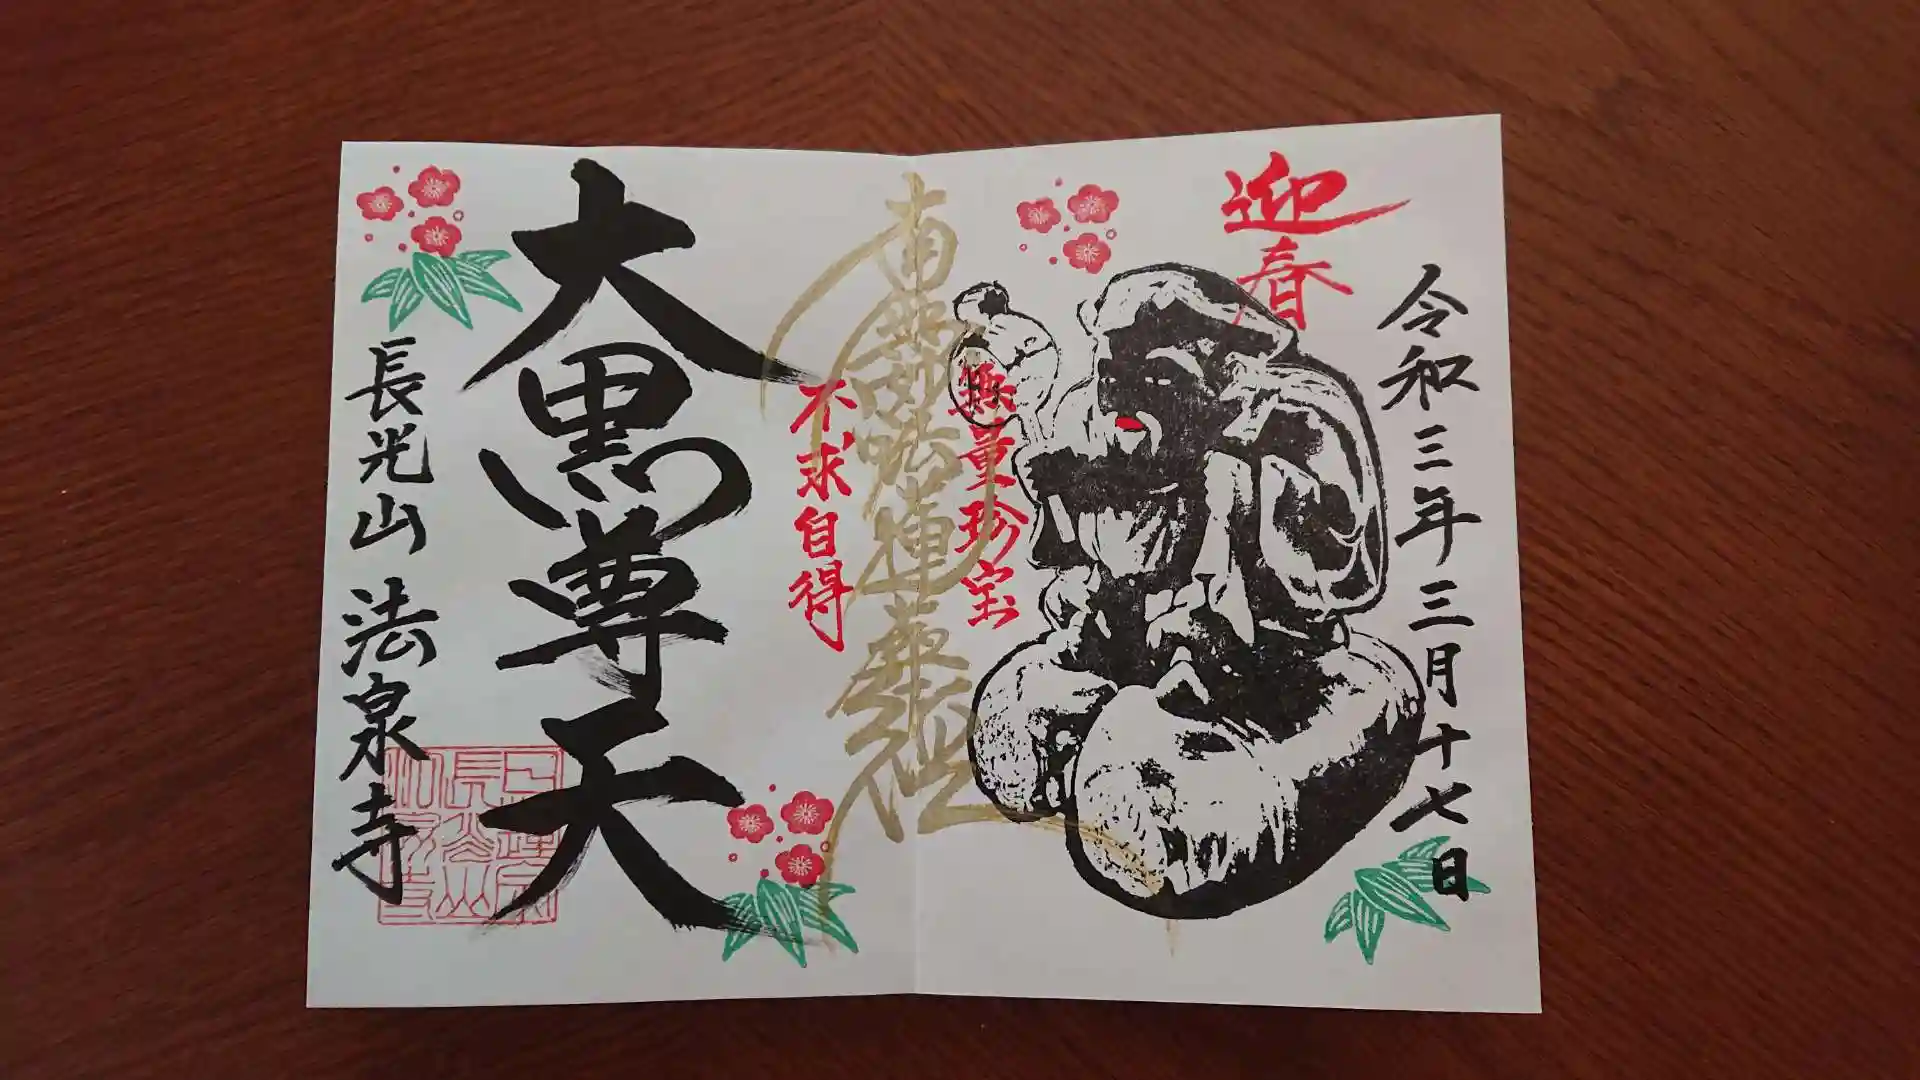 迎春
令和三年三月十七日
無量珍宝
南無妙法蓮華経
不求自得
大黒尊天
長光山 法泉寺